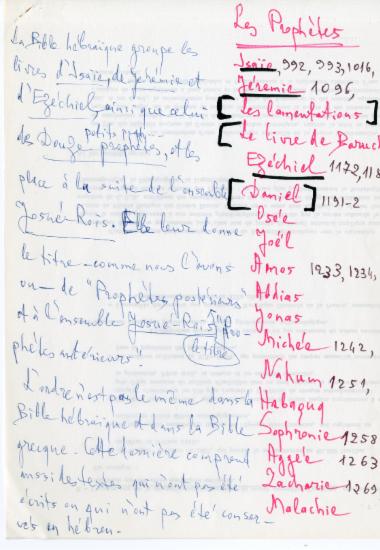 La Bible hébraïque groupe les
livres d'Isaïe, de Jérémie et
d'Ezéchiel, ainsi que celui
petits
des Douze prophètes, et les
place à la suite de l'ensemble
Josué-Rois. Elle leur donne
le titre - comme nous l'avons
vu - de "Prophètes postérieurs"
et à l'ensemble Josué-Rois, "Pro-
le titre
phètes antérieurs".
L'ordre n'est pas le même dans la
Bible hébraïque et dans la Bible
grecque. Cette dernière comprend
aussi des textes qui n'ont pas été
écrits ou qui n'ont pas été conser-
vés en hébreu.
Les Prophètes
Isaïe, 992, 993, 1016,
Jérémie 1096,
[Les lamentations]
[Le livre de Baruch
Ezéchiel 1172, 118
[Daniel] 1191-2
Osée
Joël
Amos 1233, 1234,
Abdias
Jonas
Michée 1242,
Nahum 1251,
Habaquq
Sophronie 1258
Aggée 1263
Zacharie 1269
Malachie